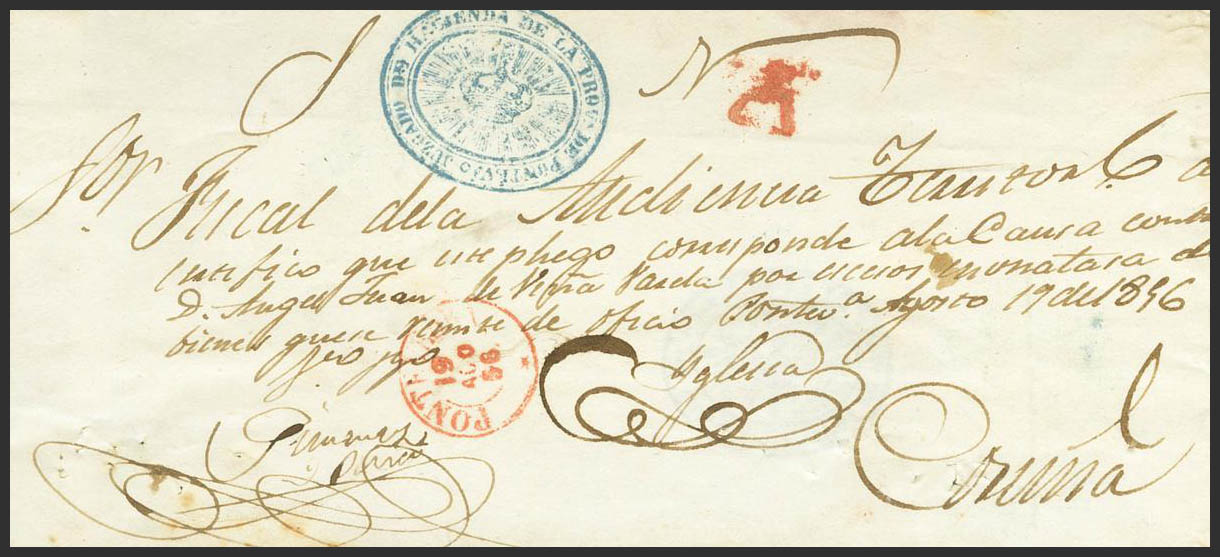 S N
JUZGADO DE HACIENDA DE LA PROVA. DE PONTEVA.
Sor. Fiscal dela Audiencia Territorl. de
Certifico que este pliego corresponde ala Causa contra
D. Angel Juan de Peña Varela por escesos enonatasa de
bienes quese remite de oficio Ponteva. Agosto 19 del 856
Yglesia
PONTEVEDRA
19 AGO 56
Gimenez
Coruña